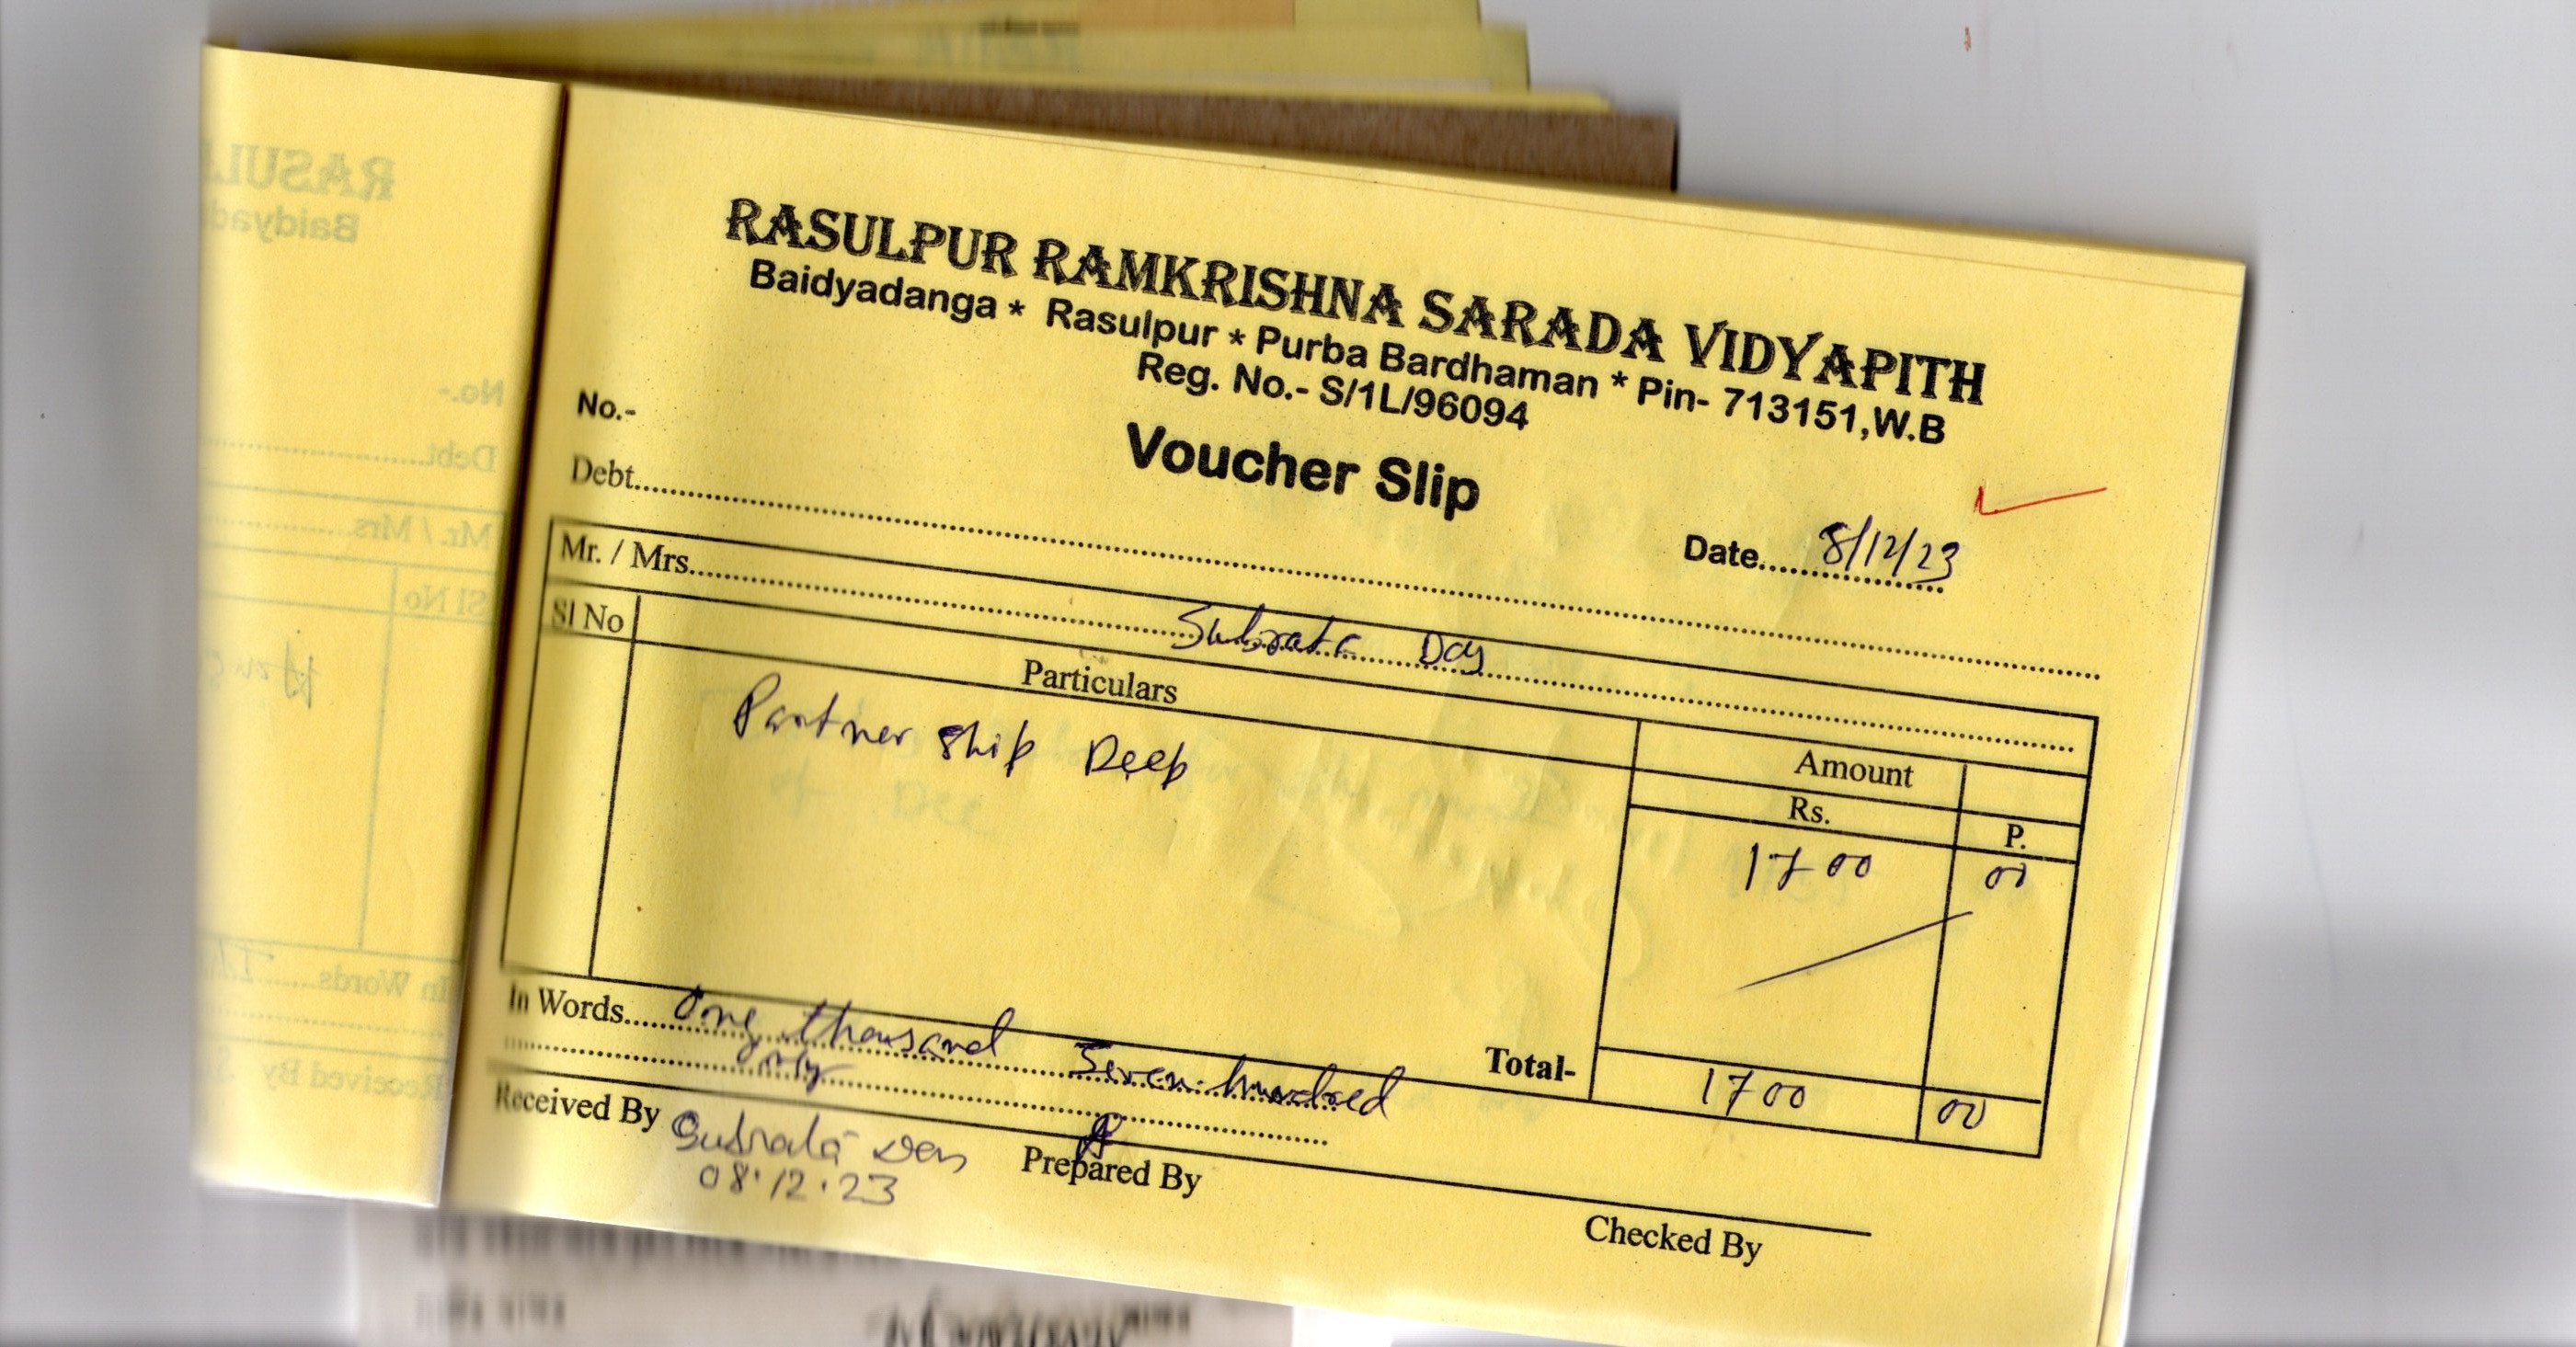 RASULPUR RAMKRISHNA SARADA VIDYAPITH
Baidyadanga * Rasulpur * Purba Bardhaman * Pin- 713151,W.B
Reg. No.- S/1L/96094
No.-
Voucher Slip
Debt
Date 8/12/23
Mr. / Mrs. Subrata Das
Sl No Particulars Amount
Rs. P.
Partner Ship Deep 1700 00
Total- 1700 00
In Words One thousand Seven hundred
only
Received By Subrata Das
08.12.23
Prepared By
Checked By